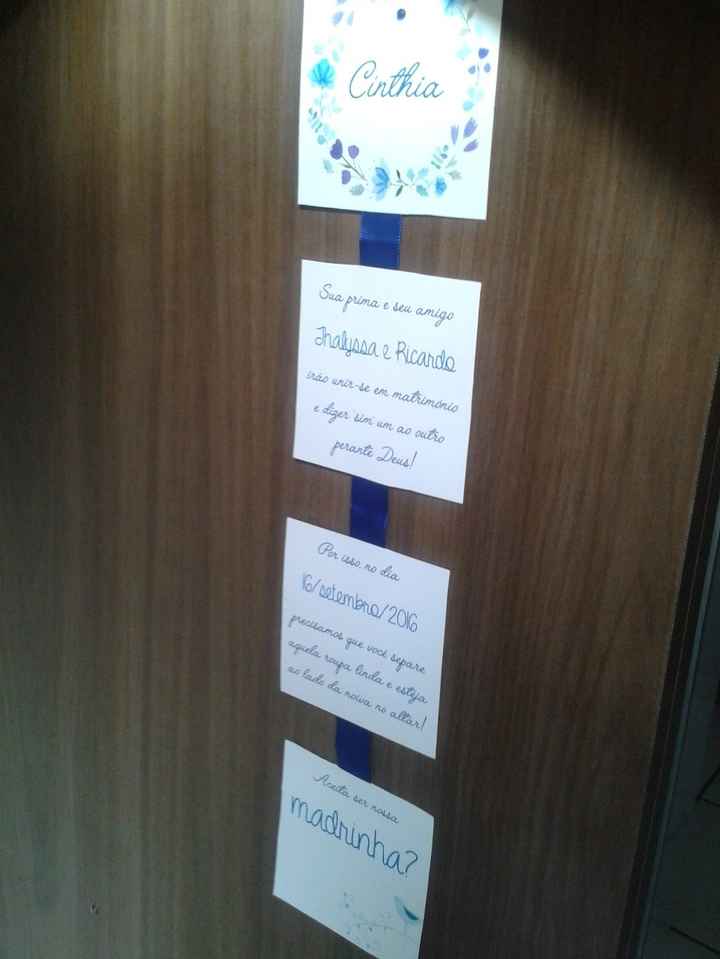 Cinthia
Sua prima e seu amigo
Thalyssa e Ricardo
irão unir-se em matrimônio
e dizer sim um ao outro
perante Deus!
Por isso no dia
16/setembro/2016
precisamos que você separe
aquela roupa linda e esteja
ao lado da noiva no altar!
Aceita ser nossa
madrinha?